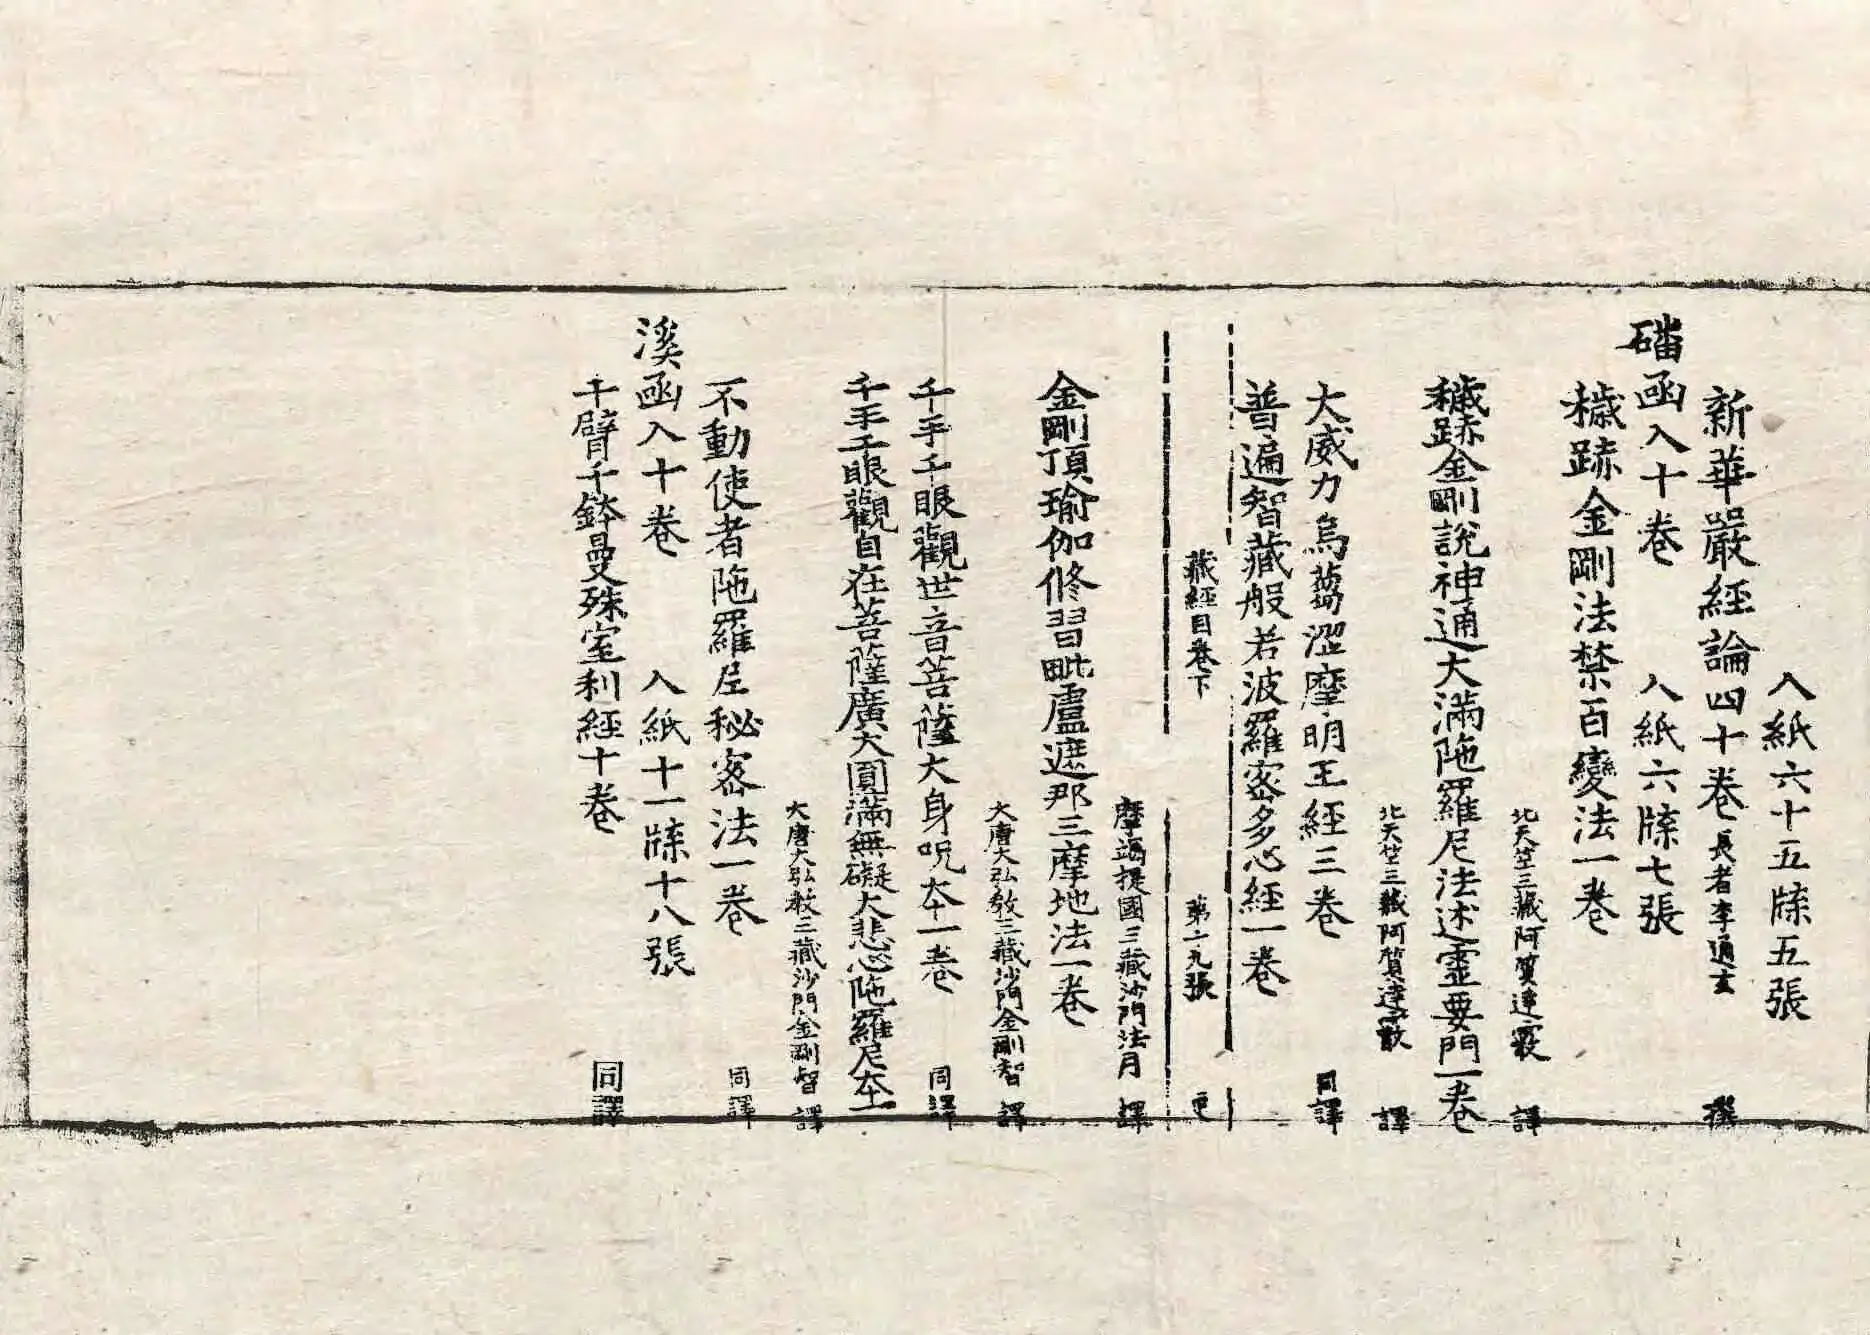 入紙六十五牒五張
新華嚴經論四十卷 長者李通玄 撰
磻函入十卷 入紙六牒七張
穢跡金剛法禁百變法一卷
北天竺三藏阿質達霰 譯
穢跡金剛說神通大滿陁羅尼法述靈要門一卷
北天竺三藏阿質達霰 譯
大威力烏蒭澀摩明王經三卷 同譯
普遍智藏般若波羅蜜多心經一卷
藏經目卷下 第二十九張 更
摩竭提國三藏沙門法月 譯
金剛頂瑜伽修習毗盧遮那三摩地法一卷
大唐大弘教三藏沙門金剛智 譯
千手千眼觀世音菩薩大身呪本一卷 同譯
千手千眼觀自在菩薩廣大圓滿無礙大悲心陁羅尼本一
大唐大弘教三藏沙門金剛智 譯
不動使者陁羅尼秘密法一卷 同譯
溪函入十卷 入紙十一牒十八張
千臂千鉢曼殊室利經十卷 同譯